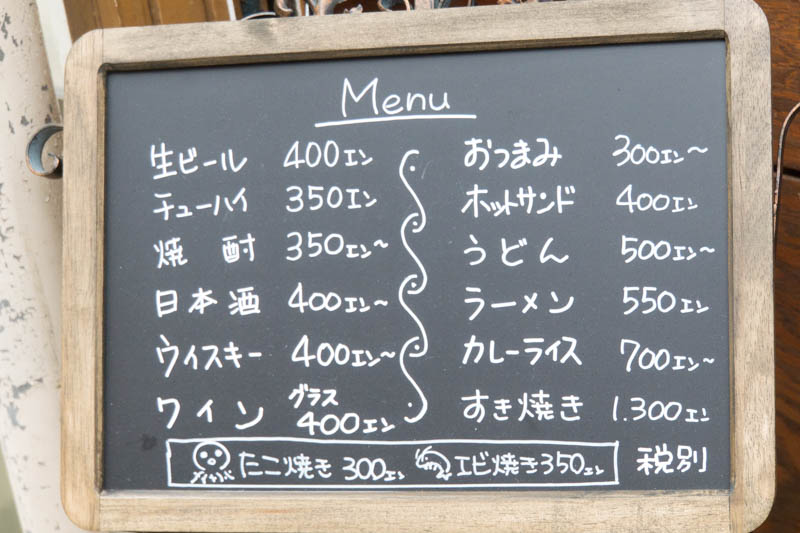 Menu
生ビール 400エン
チューハイ 350エン
焼酎 350エン~
日本酒 400エン~
ウイスキー 400エン~
ワイン グラス 400エン
おつまみ 300エン~
ホットサンド 400エン
うどん 500エン~
ラーメン 550エン
カレーライス 700エン~
すき焼き 1.300エン
たこ焼き 300エン エビ焼き 350エン
税別